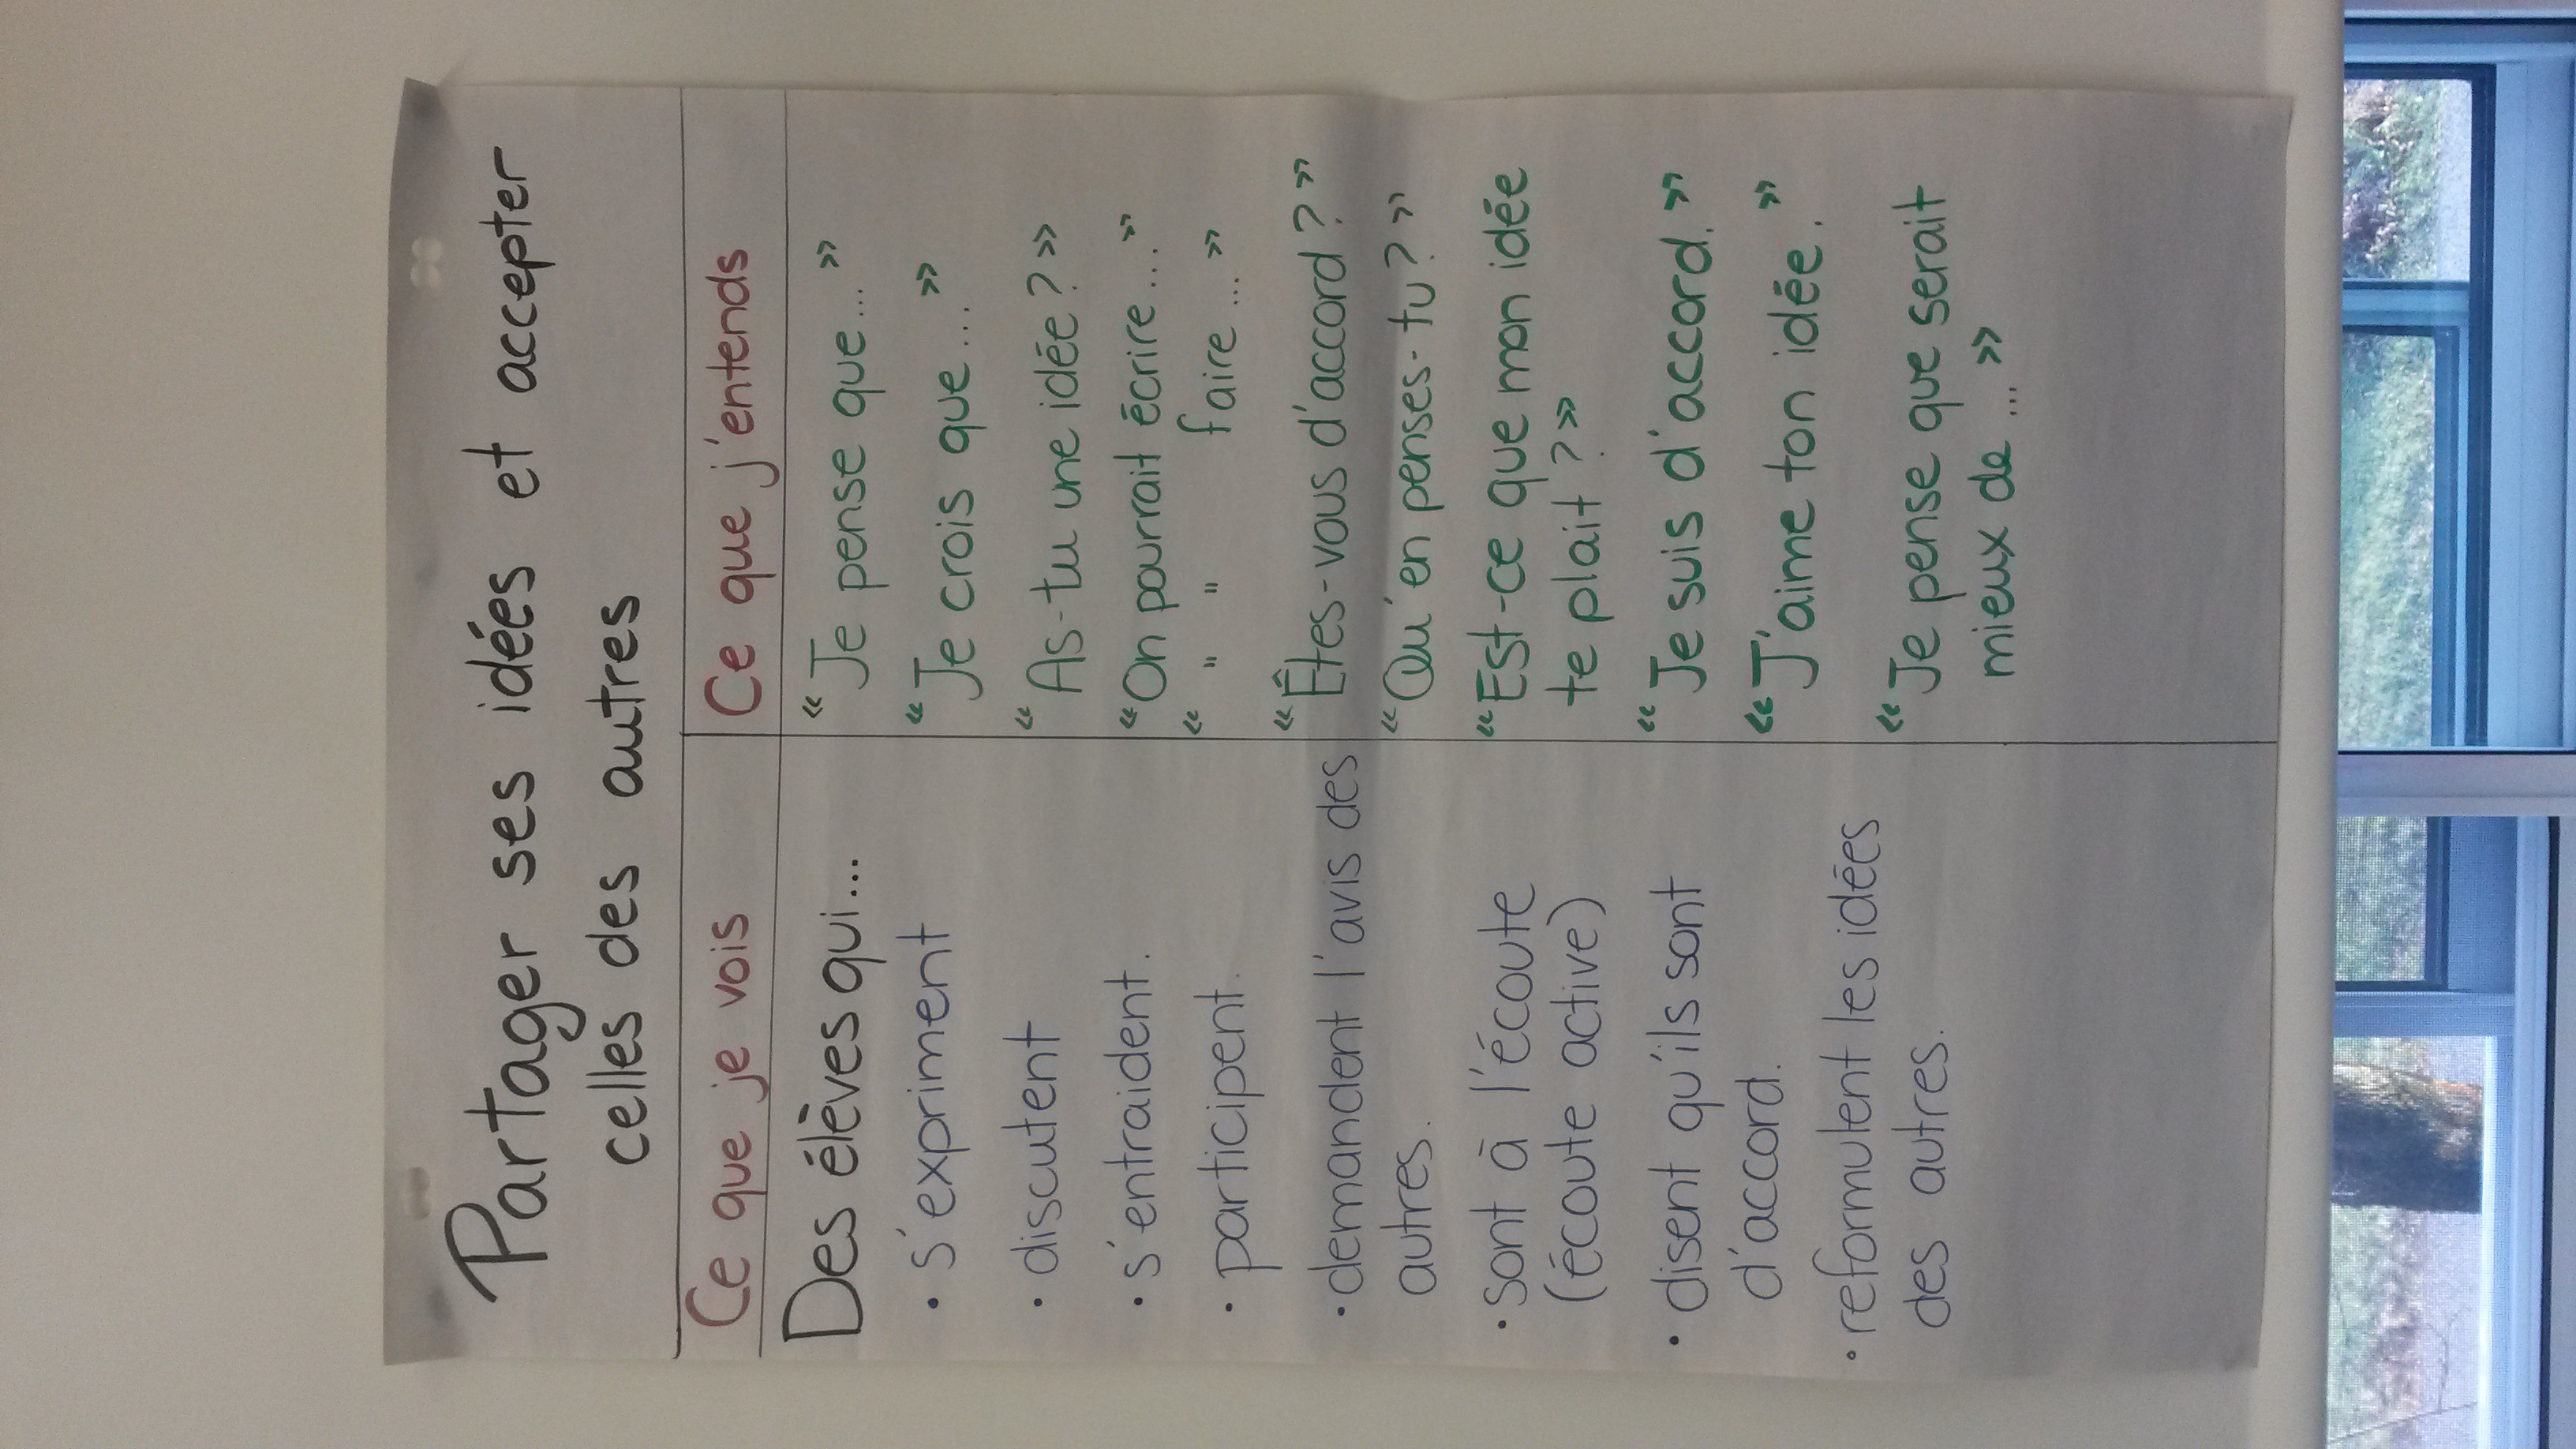 Partager ses idées et accepter
celles des autres
Ce que je vois
Des élèves qui...
• s'expriment
• discutent
• s'entraident.
• participent.
• demandent l'avis des
autres.
• sont à l'écoute
(écoute active)
• disent qu'ils sont
d'accord.
• reformulent les idées
des autres.
Ce que j'entends
« Je pense que... »
« Je crois que.... »
« As-tu une idée ? »
« On pourrait écrire.... »
« " " faire .... »
« Êtes-vous d'accord ? »
« Qu'en penses-tu ? »
« Est-ce que mon idée
te plait ? »
« Je suis d'accord. »
« J'aime ton idée. »
« Je pense que serait
mieux de .... »